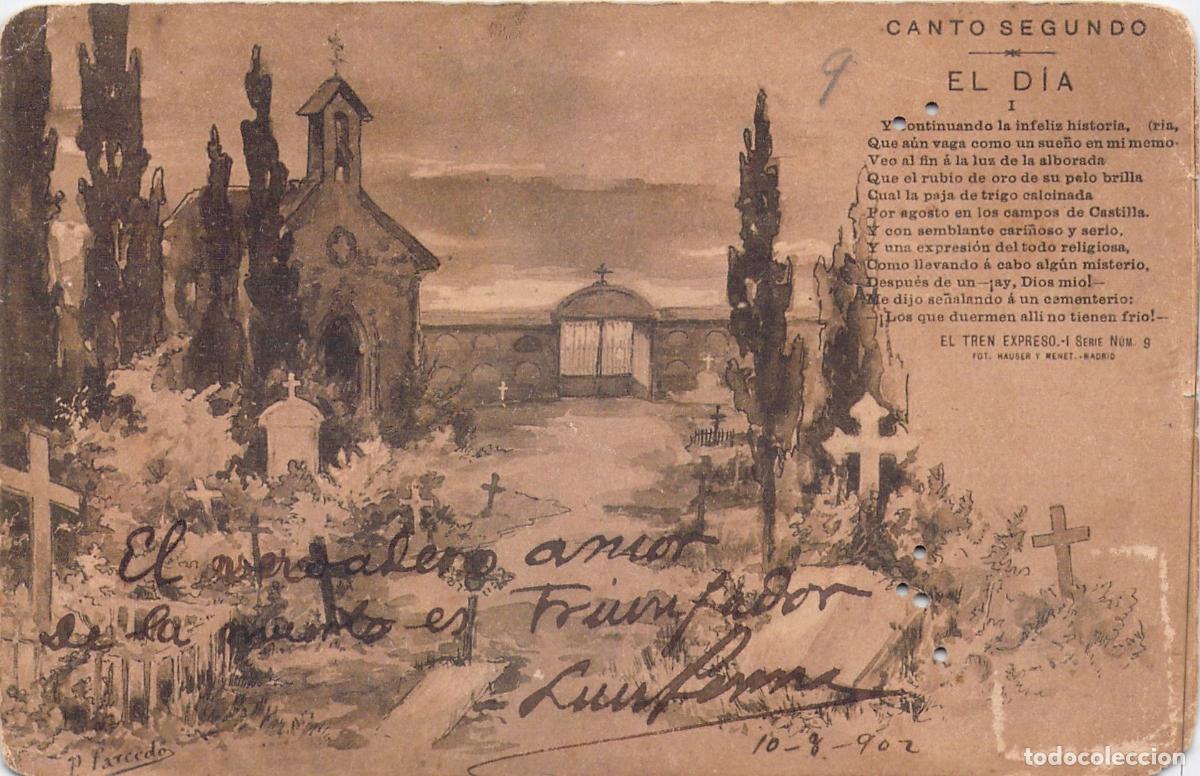 CANTO SEGUNDO
EL DÍA
I
Y continuando la infeliz historia, (ria,
Que aún vaga como un sueño en mi memo-
Veo al fin á la luz de la alborada
Que el rubio de oro de su pelo brilla
Cual la paja de trigo calcinada
Por agosto en los campos de Castilla.
Y con semblante cariñoso y serio,
Y una expresión del todo religiosa,
Como llevando á cabo algún misterio,
Después de un—¡ay, Dios mio!—
Me dijo señalando á un cementerio:
—¡Los que duermen alli no tienen frio!—
EL TREN EXPRESO.-I SERIE NÚM. 9
FOT. HAUSER Y MENET.-MADRID
9
El verdadero amor
de la muerte es Triunfador
Luis
10-8-902
P. Parcedo
todocoleccion